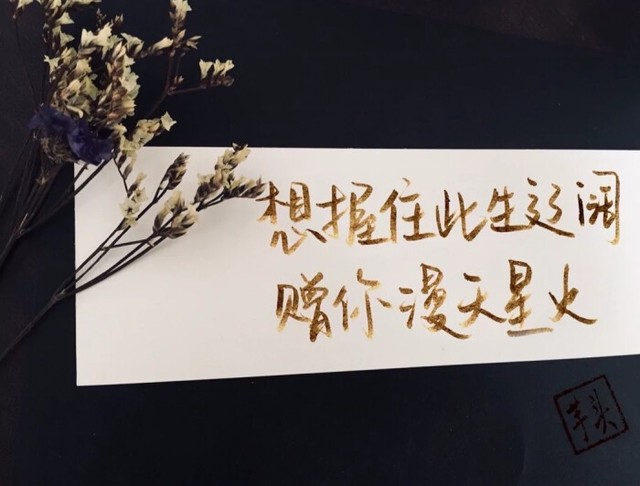 想握住此生辽阔
赠你漫天星火
芋头